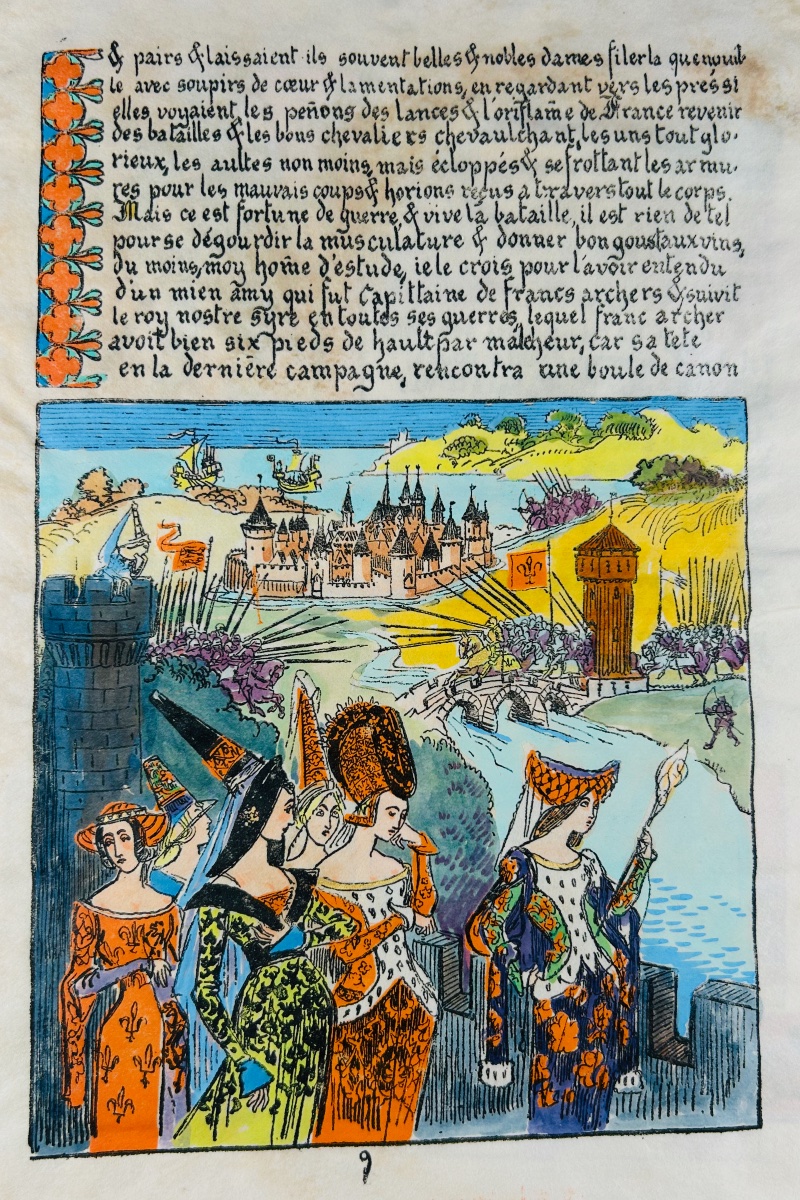 & pairs & laissaient ils souvent belles & nobles dames filer la quenouil
le avec soupirs de cœur & lamentations, en regardant vers les prés si
elles voyaient les peñons des lances & l'oriflam̃e de France revenir
des batailles & les bons chevaliers chevaulchant, les uns tout glo-
rieux, les aultes non moins, mais écloppés & se frottant les armu-
res pour les mauvais coups & horions reçus a travers tout le corps.
Mais ce est fortune de guerre & vive la bataille, il est rien de tel
pour se dégourdir la musculature & donner bon goust aux vins,
du moins, moy hom̃e d'estude, ie le crois pour l'avoir entendu
d'un mien amy qui fut Capittaine de francs archers & suivit
le roy nostre Syre en toutes ses guerres, lequel franc archer
avoit bien six pieds de hault par malcheur, car sa tete
en la dernière campagne, rencontra une boule de canon
9